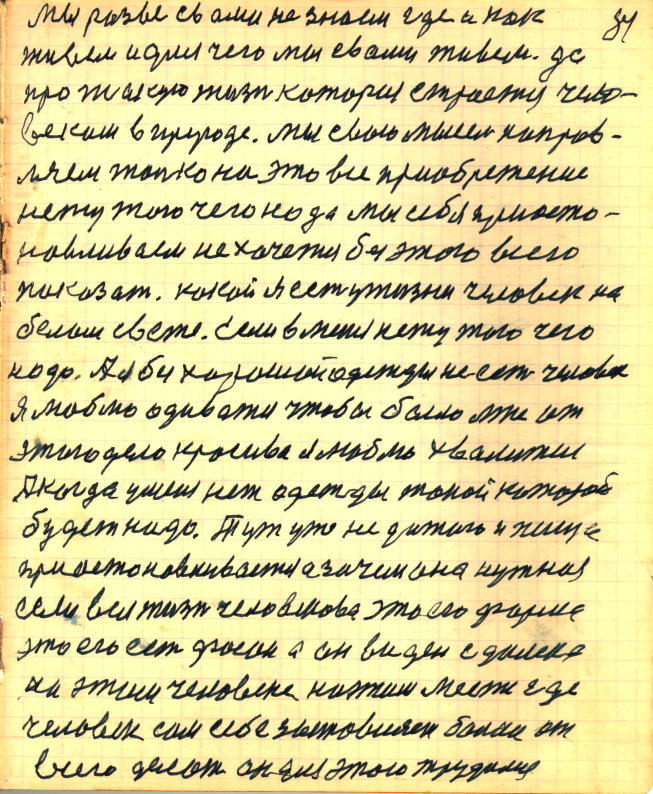 мы разве с вами не знаем где и как 34
живем и для чего мы с вами живем. да
про такую жизн которая строется чело-
веком в природе. мы свою мысел направ-
ляем толко на это все приобретение
нету того чего нада мы себя приоста-
новливаем не хочется бы этого всего
показат. какой я ест у жизни человек на
белом свете. если в меня нету того чего
надо. А я бы хорошой одежды не сет человек
я люблю одиватся чтобы было мне от
этого дело красива я люблю хвалится
А когда у меня нет одежды такой которой
будет надо. Тут уже не до того и пища
приостановливается а зачем она нужная
если вся жизн человекова это его форма
это его ест фасон а он виден с далека
на этим человеке на этим месте где
человек сам себе зготовляет болш от
всего делает он для этого трудится